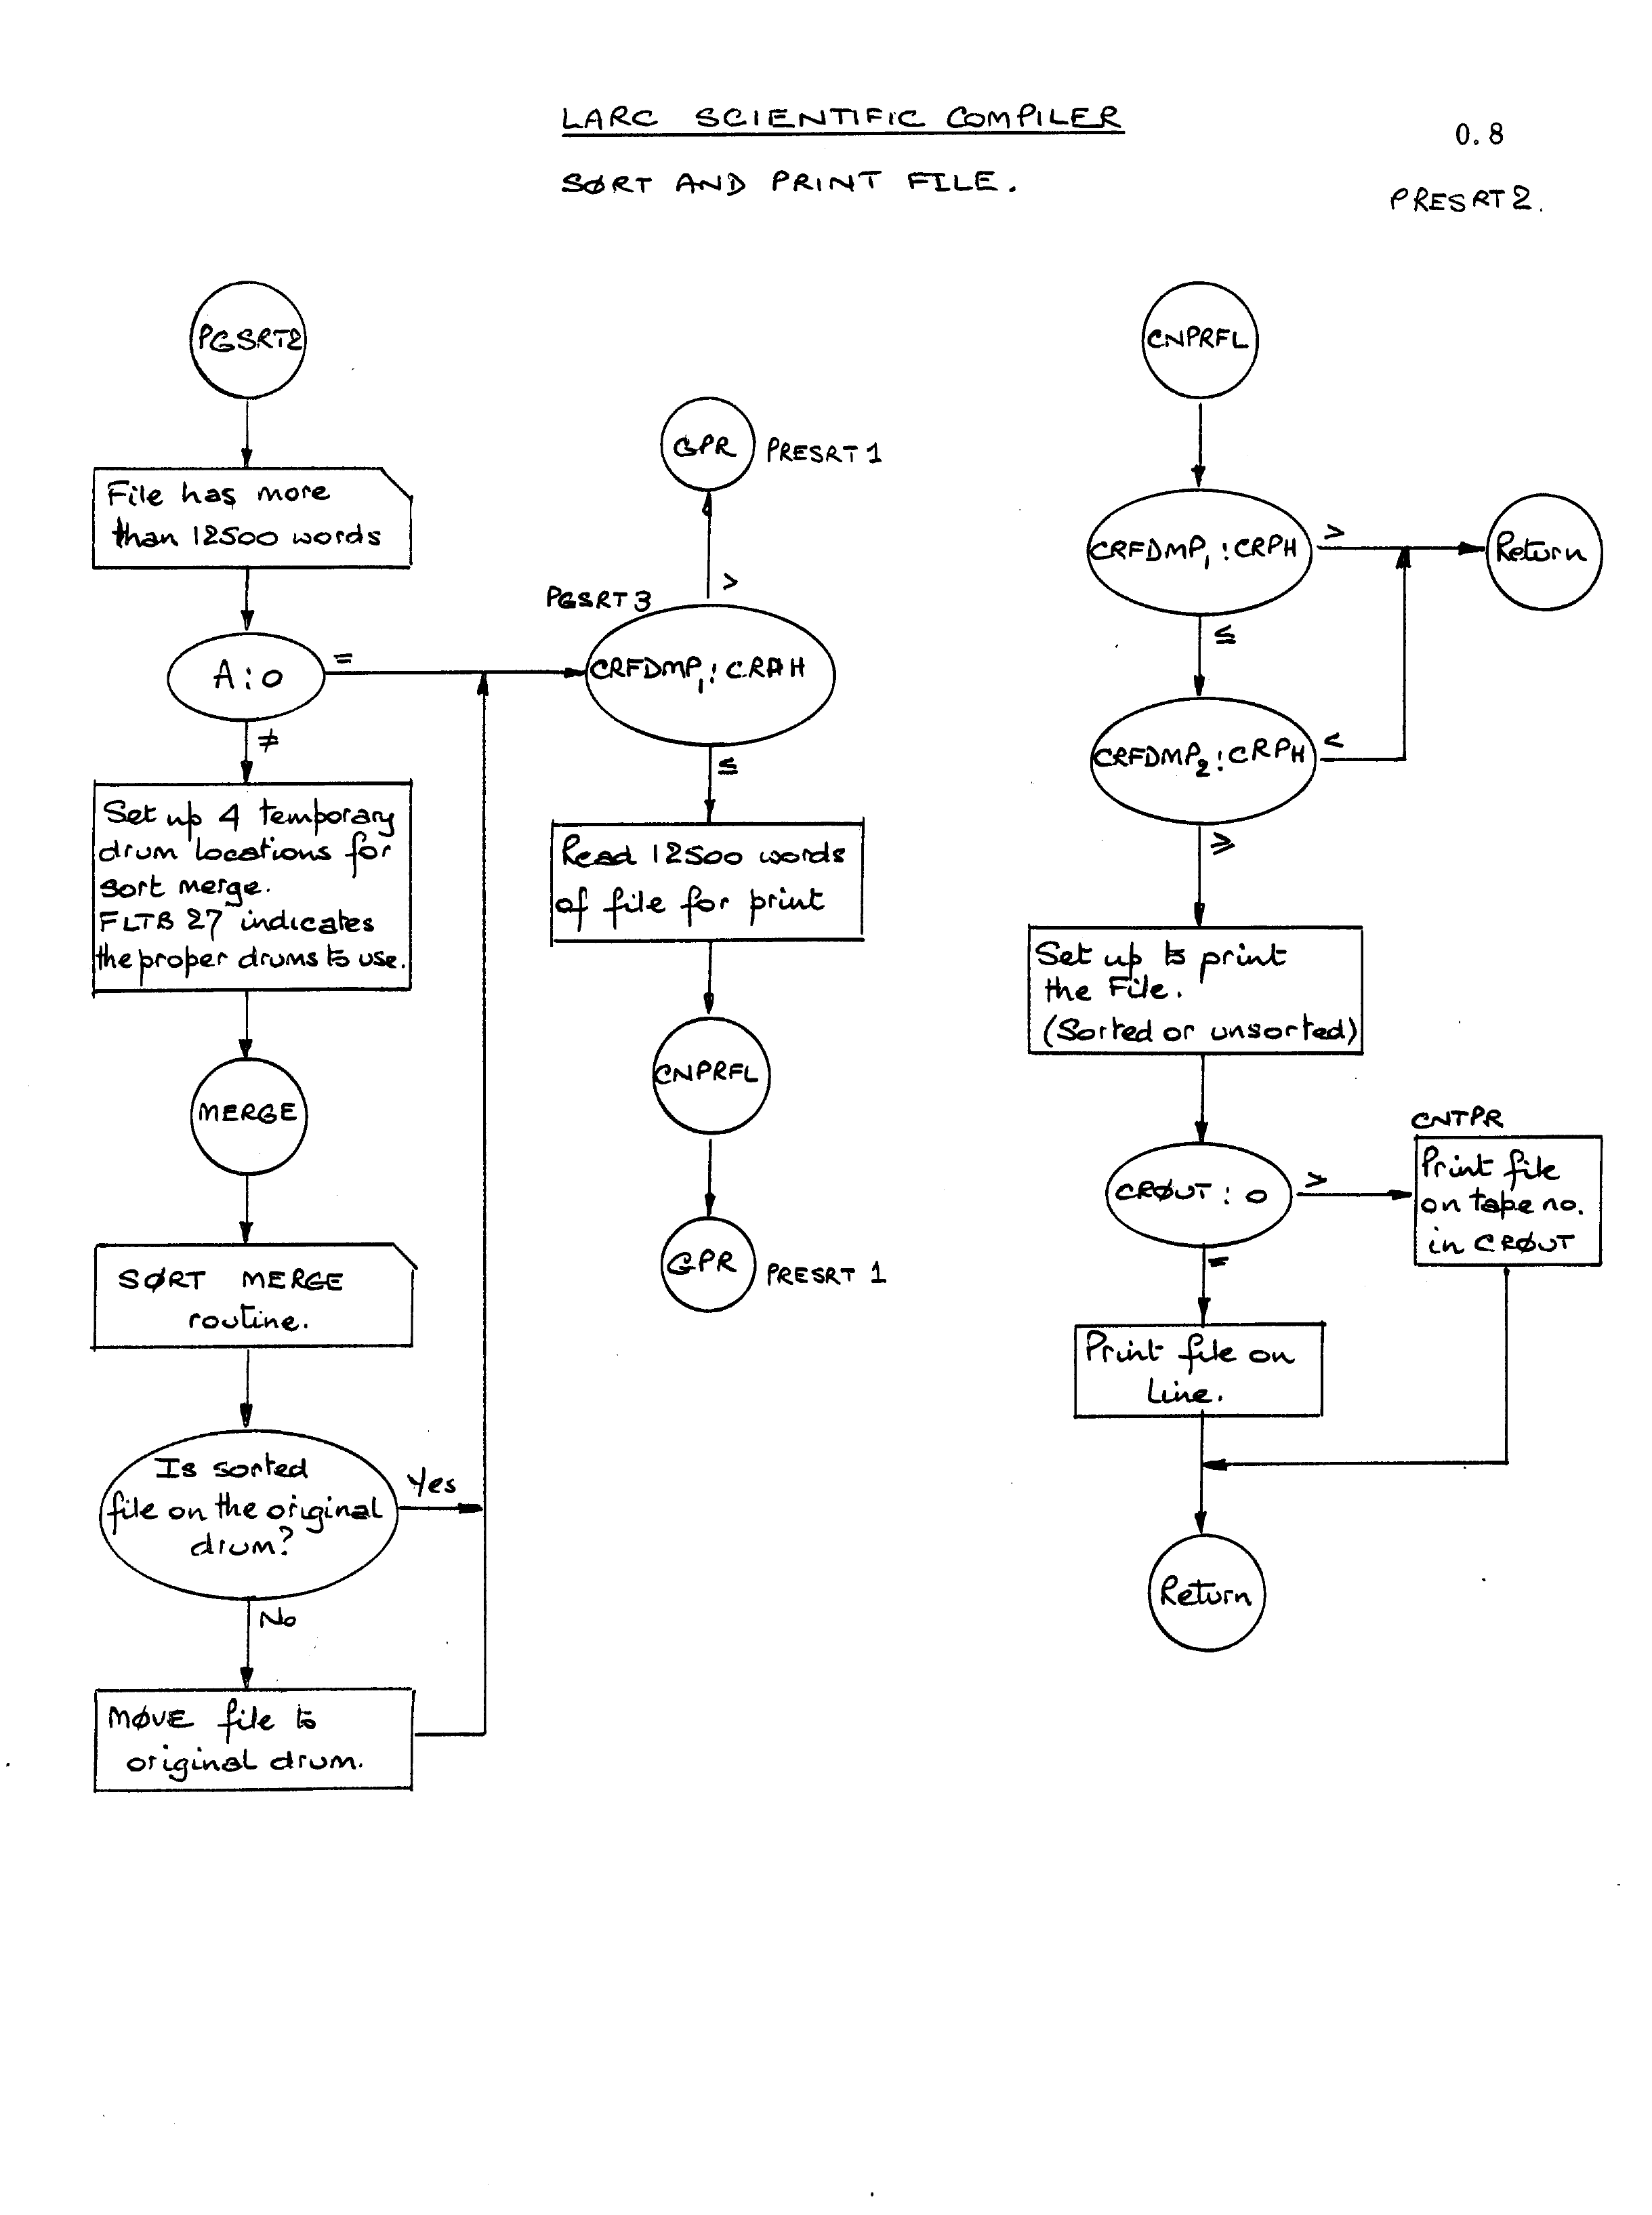 LARC SCIENTIFIC COMPILER
0.8
SØRT AND PRINT FILE.
PRESRT2.
PGSRT2
File has more
than 12500 words
A : 0
=
≠
Set up 4 temporary
drum locations for
sort merge.
FLTB 27 indicates
the proper drums to use.
MERGE
SØRT MERGE
routine.
Is sorted
file on the original
drum?
Yes
No
MØVE file to
original drum.
GPR
PRESRT 1
>
PGSRT 3
CRFDMP₁ : CRPH
≤
Read 12500 words
of file for print
CNPRFL
GPR
PRESRT 1
CNPRFL
CRFDMP₁ : CRPH
>
Return
≤
CRFDMP₂ : CRPH
<
≥
Set up to print
the File.
(Sorted or unsorted)
CRØUT : 0
>
CNTPR
Print file
on tape no.
in CRØUT
=
Print file on
Line.
Return